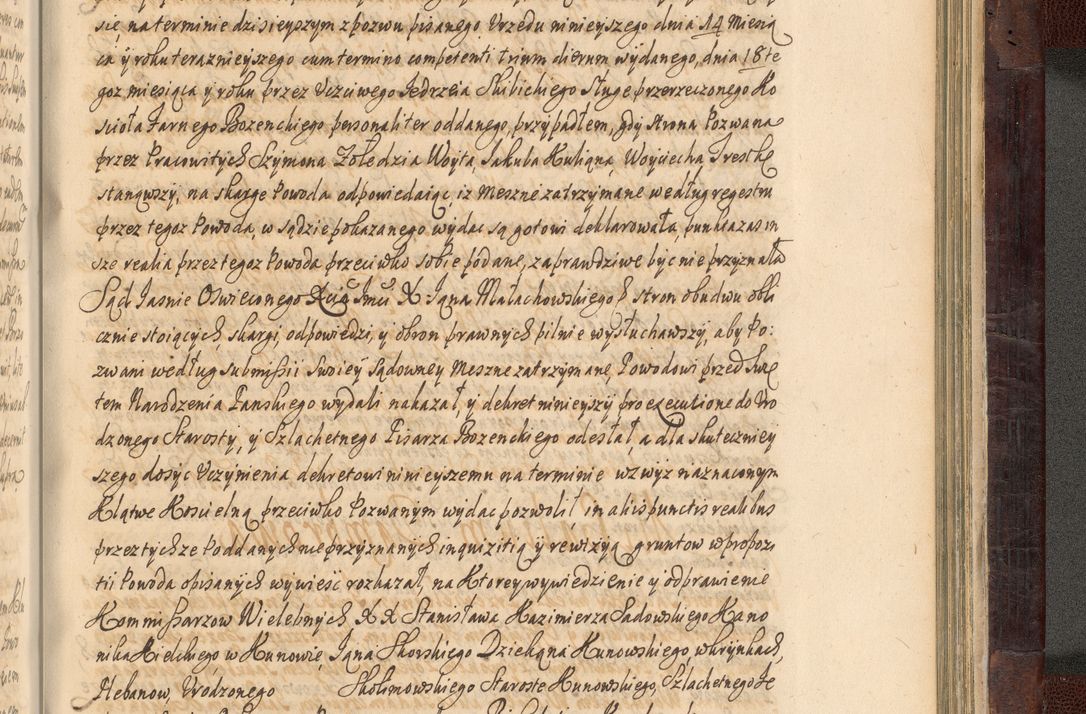 się na terminie dzisieyszym z pozwu pisanego Vrzedu ninieyszego dnia 14 Miesią
ca y roku teraznieyszego cum termino competenti trium dierum wydanego, dnia 18 te
goz miesiąca y roku przez Vczciwego Jedrzeia Skibickiego Sługe przerzeczonego Ko
scioła Farnego Bozenckiego personaliter oddanego, przypadłem, gdy strona Pozwana
przez Pracowitych Szymona Zołedzia Woyta, Jakuba Kuligna, Woyciecha Treske
stanąwszy, na skarge Powoda odpowiedaiąc, iz Meszne zatrzymane według regestru
przez tegoz Powoda, w sądzie pokazanego, wydac są gotowi deklarowała, punkta zas in
sze realia przez tegoz Powoda przeciwko sobie podane, za prawdziwe byc nie przyznała
Sąd Jasnie Oswieconego Xcią Jmci X Jana Małachowskiego stron obudwu obli
cznie stoiących, skargi, odpowiedzi, y obron prawnych pilnie wysłuchawszy, aby Po:
zwani według submissii swoiey sądowney Meszne zatrzymane, Powodowi przed Swię
tem Narodzenia Panskiego wydali nakazał, y dekret ninieyszy pro executione do Vro
dzonego Starosty, y Szlachetnego Pisarza Bozenckiego odesłał, a dla skuteczniey
szego dosyc Vczynienia dekretowi ninieyszemu na terminie wzwyz naznaczonym
Klątwe Koscielną przeciwko Pozwanym wydac pozwolił, in aliis punctis realibus
przez tychze Poddanych nie przyznanych inquizitią y rewizyą gruntow w propozi
tii Powoda opisanych wywiesc rozkazał, na Ktorey wywiedzienie y odprawienie
Kommissarzow Wielebnych X X Stanisława Kazimierza Sadowskiego Kano
nika Kielckiego w Kunowie Jana Skorskiego Dziekana Kunowskiego, w Krynkach,
Plebanow, Vrodzonego Skolimowskiego Staroste Kunowskiego, Szlachetnego Je